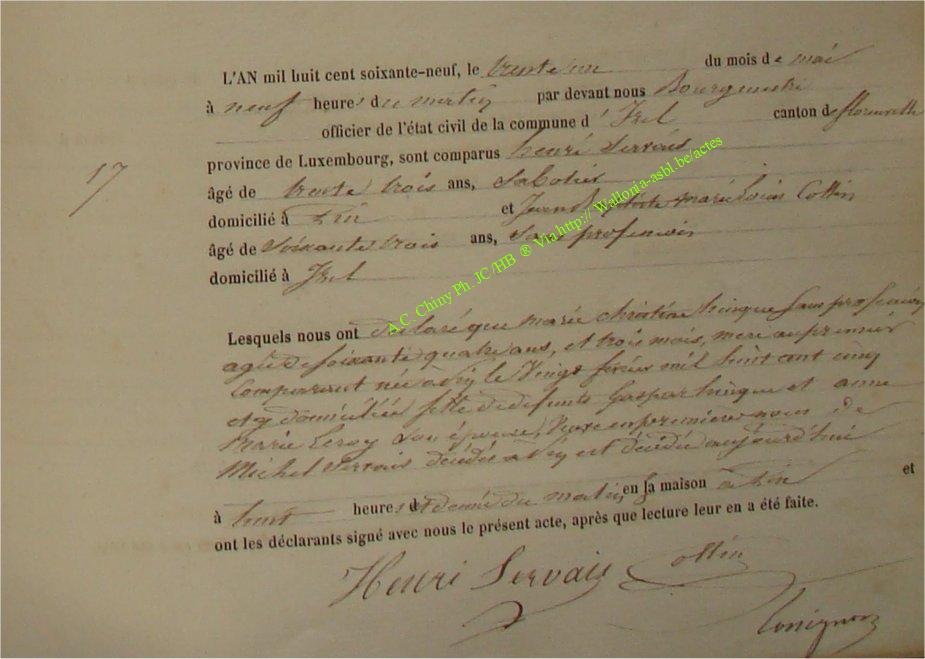 L'AN mil huit cent soixante-neuf, le trente un du mois de mai
à neuf heures du matin par devant nous Bourgmestre
officier de l'état civil de la commune d' Izel canton de florenville
17
province de Luxembourg, sont comparus henri Servais
âgé de trente trois ans, Sabotier
domicilié à et marie Louis Collin
âgé de soixante trois ans, Sans profession
domicilié à Izel
A.C. Chiny Ph. JC /HB ® Via http:// Wallonia-asbl.be/actes
Lesquels nous ont déclaré que marie christine hinque sans profession
agée de soixante quatre ans, et trois mois, mere au premier
Comparant née à le Vingt février mil huit cent cinq
et y domiciliée fille de defunts Gaspar hinque et anne
Marie Leroy son épouse, Veuve en premieres noces de
Michel Servais décédé a est décédée aujourd'hui
à huit heures et demie du matin en la maison à et
ont les déclarants signé avec nous le présent acte, après que lecture leur en a été faite.
Henri Servais Collin